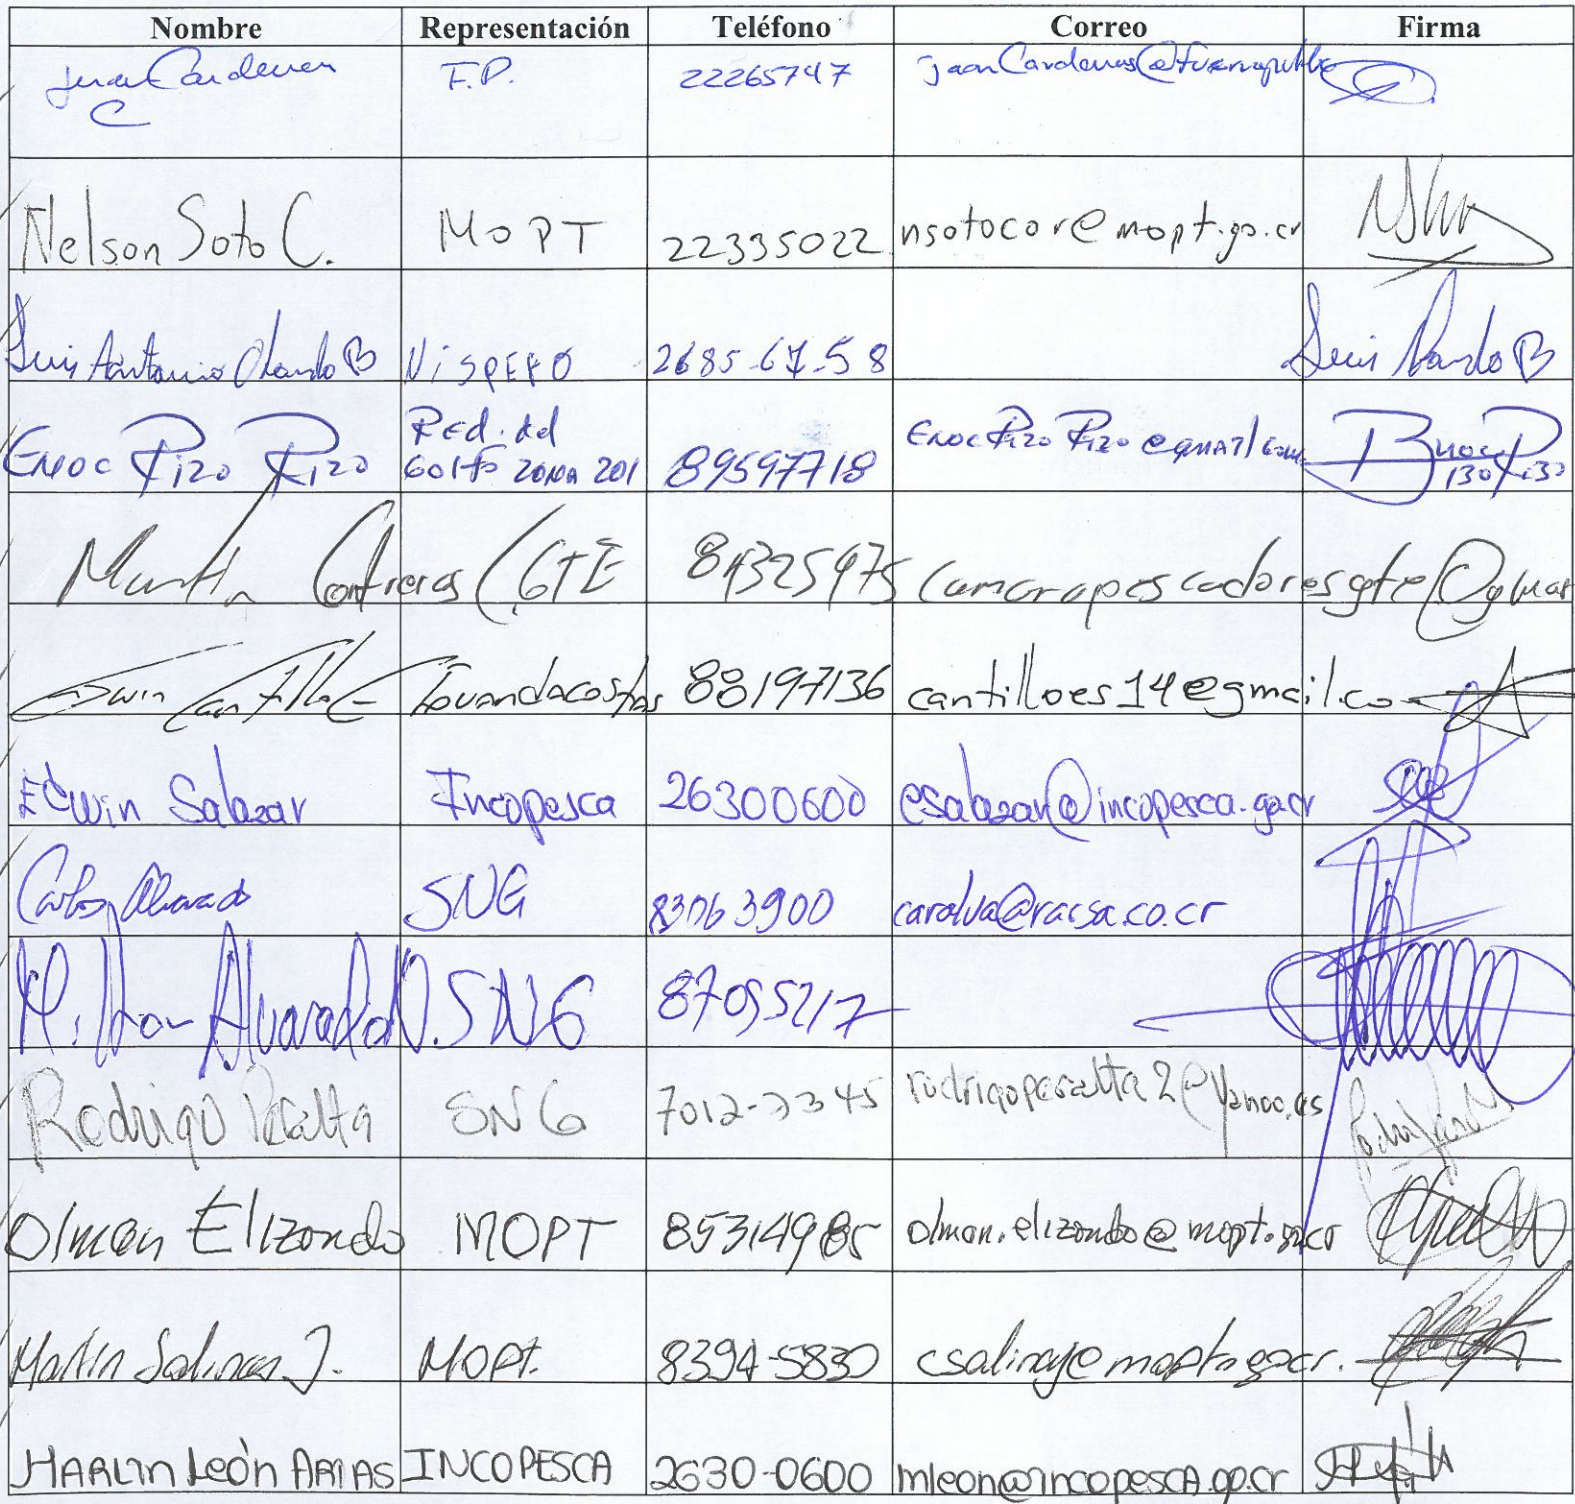 Nombre Representación Teléfono Correo Firma
Juan Cardenas C F.P. 22265747
Nelson Soto C. MOPT 22335022 nsotocor@mopt.go.cr
Luis Antonio Obando B NISPERO 2685-67-58
ENOC Rizo Rizo Red. del Golfo ZONA 201 89597718 ENOC Rizo Rizo@GMAIl
Martin Contreras CGTE camarapescadoresgte@gmai
Edwin Cantillo E 88197136 cantilloes14@gmail.co
Edwin Salazar Incopesca 26300600 esalazar@incopesca.go.cr
Carlos Alvarado SNG 83063900 carolva@racsa.co.cr
Milton Alvarado N. SNG 87055217
Rodrigo Peralta SNG 7012-3345 rodrigoperalta2@yahoo.es
Olman Elizondo MOPT 85314985 olman.elizondo@mopt.go.cr
Martín Salinas J. MOPT. 8394-5830 csalinaj@mopt.go.cr.
MARLIN León ARIAS INCOPESCA 2630-0600 mleon@incopescA.go.cr